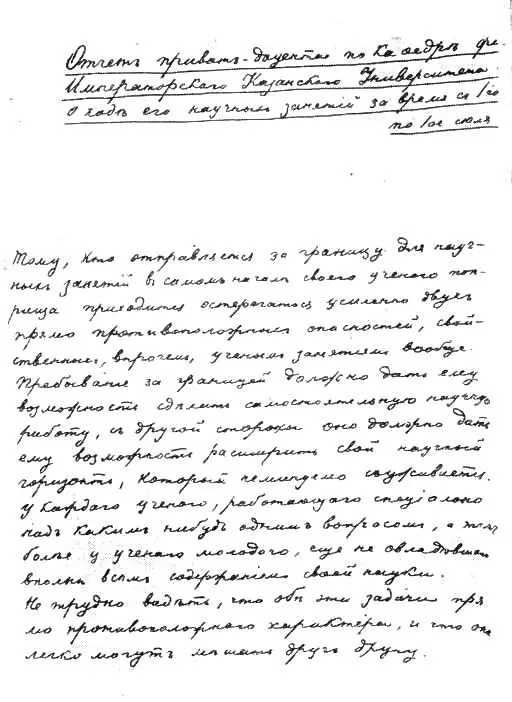 Отчетъ приватъ-доцента по каѳедрѣ фи
Императорскаго Казанскаго Университета
О ходѣ его научныхъ занятій за время съ 1го
по 1ое іюля
Тому, кто отправляется за границу для науч-
ныхъ занятій въ самомъ началѣ своего ученаго поп-
рища приходится остерегаться усиленно двухъ
прямо противоположныхъ опасностей, свой-
ственныхъ, впрочемъ, ученымъ занятіямъ вообще.
Пребываніе за границей должно дать ему
возможность сдѣлать самостоятельную научную
работу, съ другой стороны оно должно дать
ему возможность расширить свой научный
горизонтъ, который неминуемо суживается
у каждаго ученаго, работающаго спеціально
надъ какимъ нибудь однимъ вопросомъ, а тѣмъ
болѣе у ученаго молодого, еще не овладѣвшаго
вполнѣ всѣмъ содержаніемъ своей науки.
Не трудно видѣть, что обѣ эти задачи пря
мо противоположнаго характера, и что онѣ
легко могутъ мѣшать другъ другу.